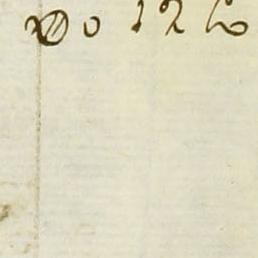 No 126